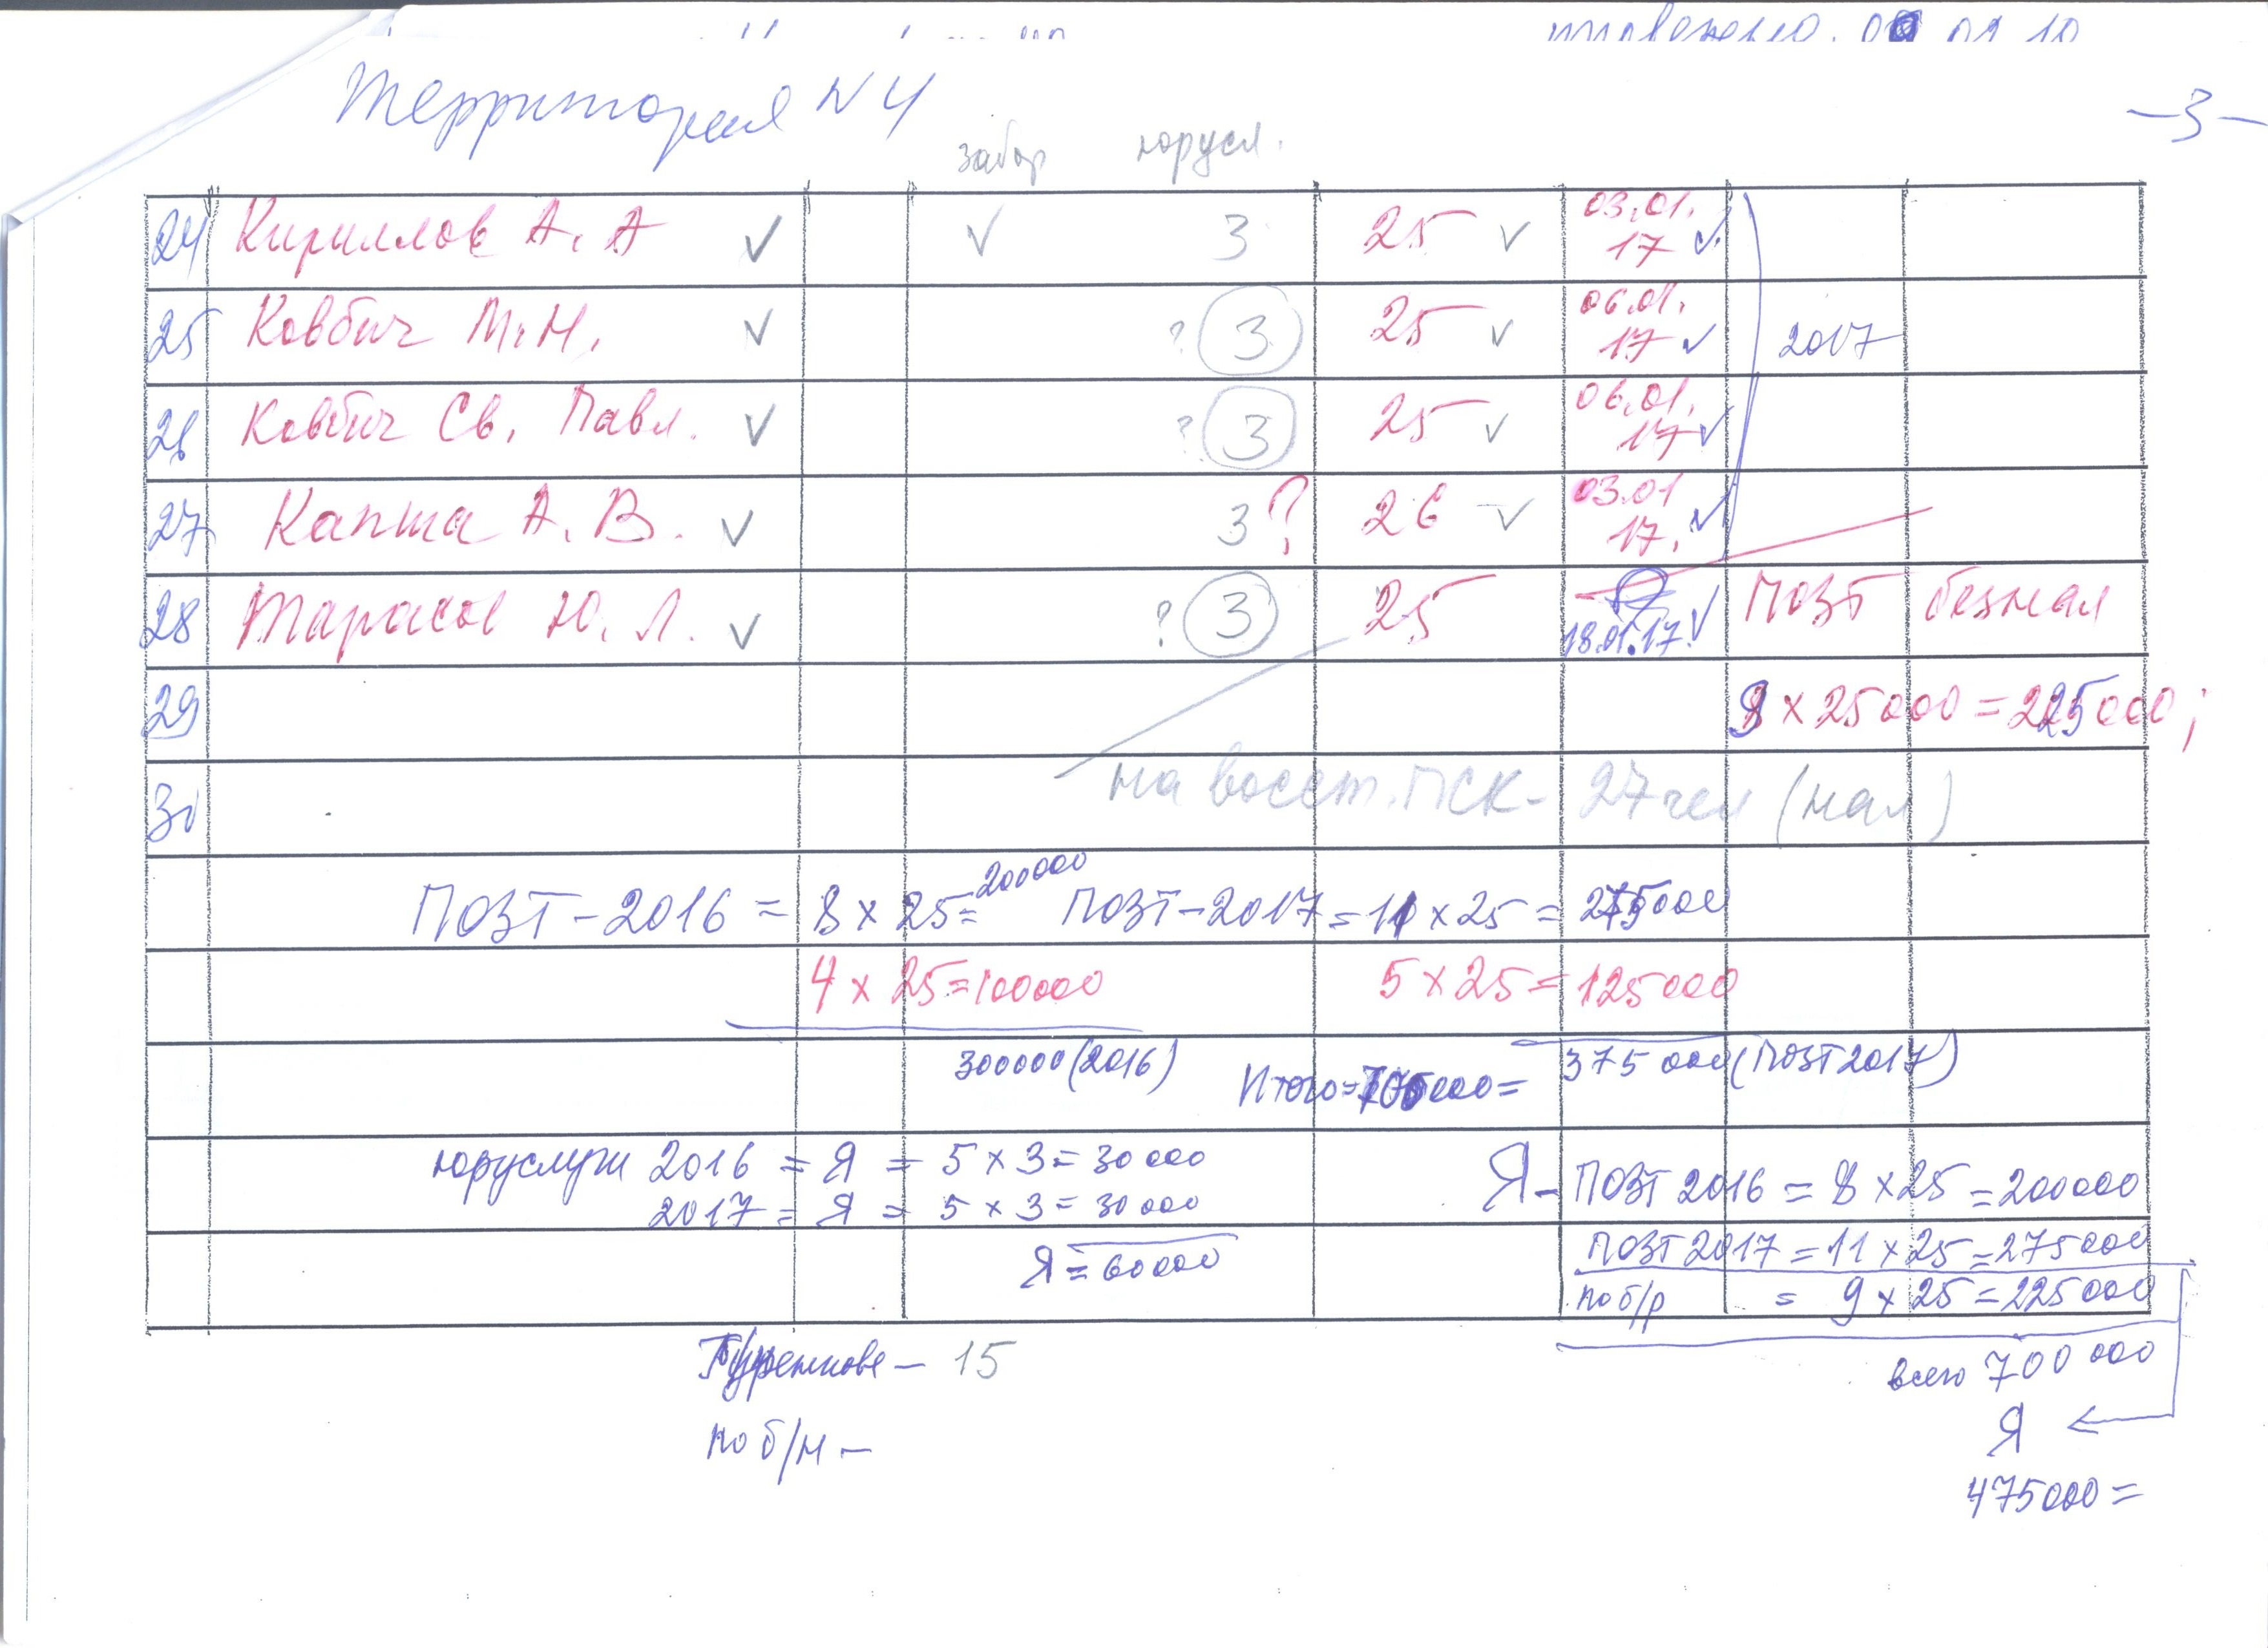 Территория N 4
-3-
забор юрусл.
24 Кириллов А. А ✓ ✓ 3 25 ✓ 03.01. 17 ✓
25 Ковбич М. Н. ✓ ? 3 25 ✓ 06.01. 17 ✓ 2017
26 Ковбич Св. Павл. ✓ ? 3 25 ✓ 06.01. 17 ✓
27 Капша А. В. ✓ 3 ? 26 ✓ 03.01 17. ✓
28 Тарасов Ю. Л. ✓ ? 3 25 18.01.17. ✓ ПОЗТ безнал
29 9 × 25000 = 225000;
30 на восст. ПСК - 27 чел (нал)
ПОЗТ - 2016 = 8 × 25 = 200000 ПОЗТ - 2017 = 11 × 25 = 275000
4 × 25 = 100000 5 × 25 = 125000
300000 (2016) Итого = 000 = 375 000 (ПОЗТ 2017)
юруслуги 2016 = Я = 5 × 3 = 30000 Я - ПОЗТ 2016 = 8 × 25 = 200000
2017 = Я = 5 × 3 = 30000
Я = 60000 ПОЗТ 2017 = 11 × 25 = 275000
по б/р = 9 × 25 = 225000
- 15
всего 700 000
по б/н -
Я
475000 =